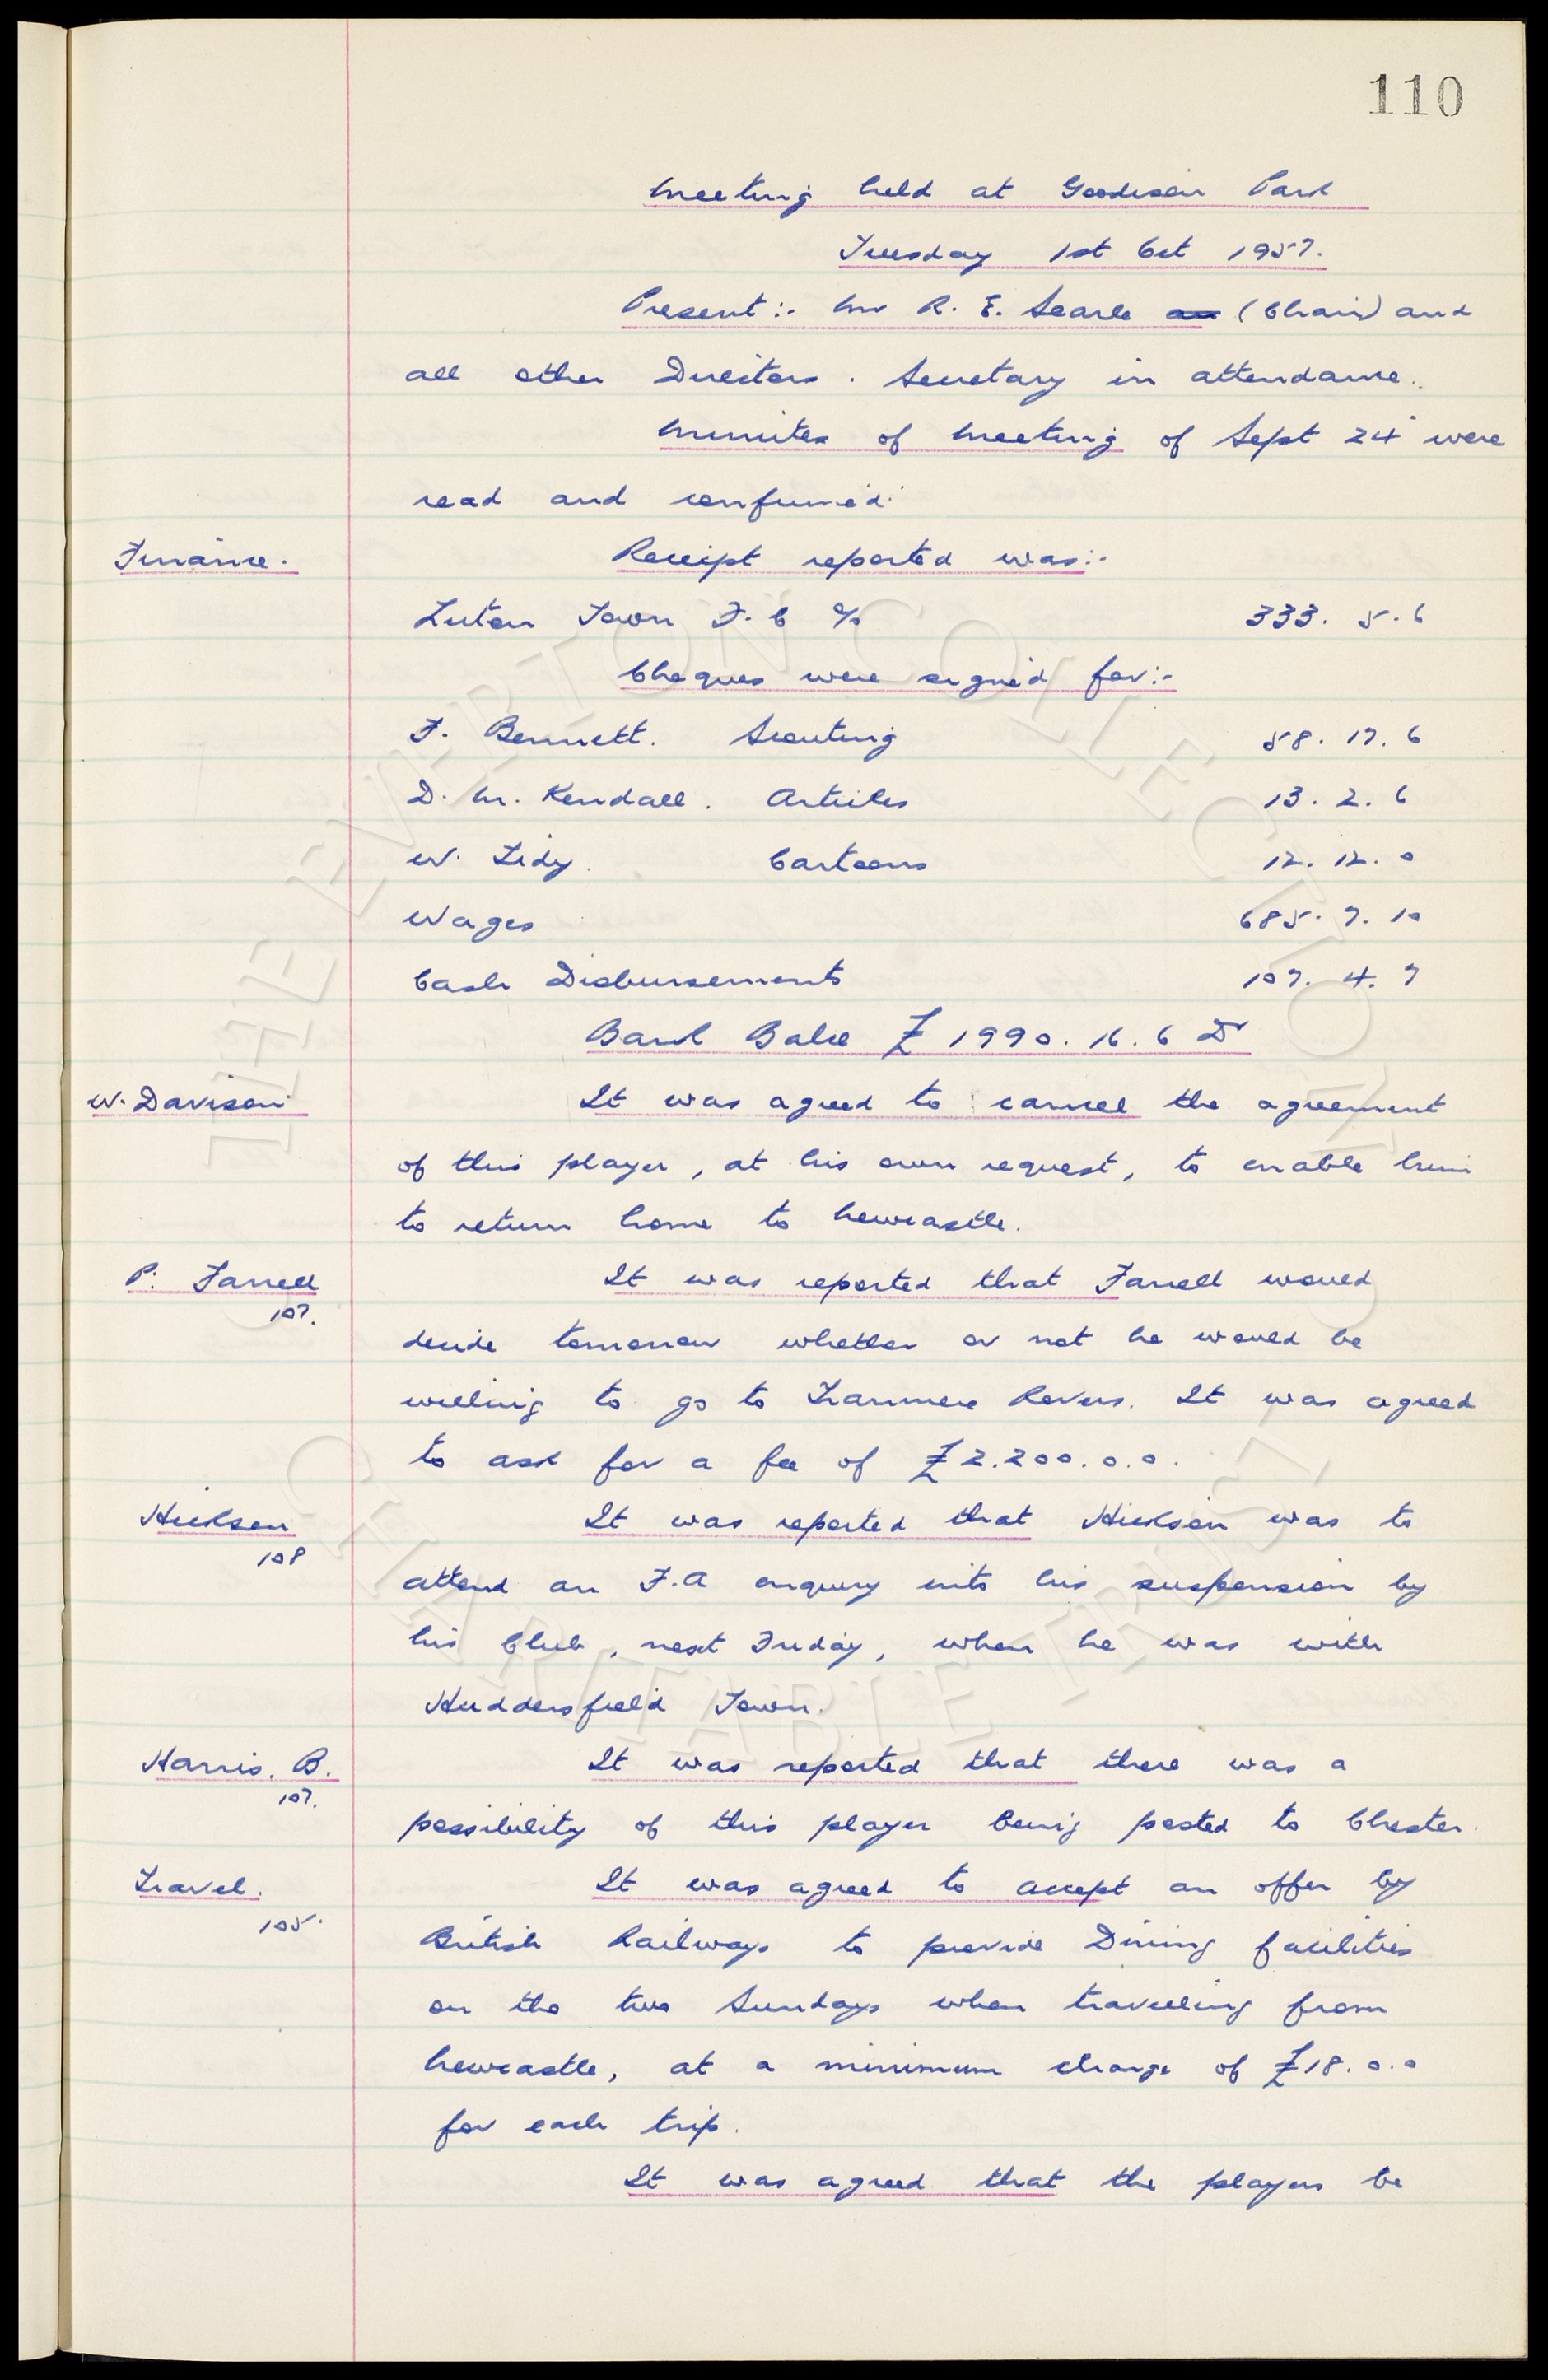 110
Meeting held at Goodison Park
Tuesday 1st Oct 1957.
Present:- Mr R. E. Searle (Chair) and
all other Directors. Secretary in attendance.
Minutes of Meeting of Sept 24 were
read and confirmed.
Finance. Receipt reported was:-
Luton Town F.C % 333. 5. 6
Cheques were signed for:-
F. Bennett. Scouting 58. 17. 6
D. M. Kendall. Articles 13. 2. 6
W. Tidy. Cartoons 12. 12. 0
Wages 685. 7. 10
Cash Disbursements 107. 4. 7
Bank Balce £1990. 16. 6 Dr
W. Davison It was agreed to cancel the agreement
of this player, at his own request, to enable him
to return home to Newcastle.
P. Farrell It was reported that Farrell would
107.
decide tomorrow whether or not he would be
willing to go to Tranmere Rovers. It was agreed
to ask for a fee of £2.200.0.0.
Hickson It was reported that Hickson was to
108
attend an F.A enquiry into his suspension by
his Club, next Friday, when he was with
Huddersfield Town.
Harris. B. It was reported that there was a
107.
possibility of this player being posted to Chester.
Travel. It was agreed to accept an offer by
105.
British Railways to provide Dining facilities
on the two Sundays when travelling from
Newcastle, at a minimum charge of £18.0.0
for each trip.
It was agreed that the players be
THE EVERTON COLLECTION
CHARITABLE TRUST